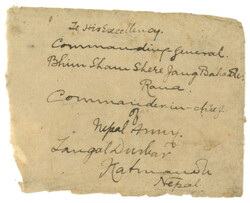 To His Excellency.
Commanding General.
Bhim Sham Shere Jang Bahadur
Rana.
Commander-in-chief
of
Nepal Army.
Tangal Durbar
Katmandu
Nepal